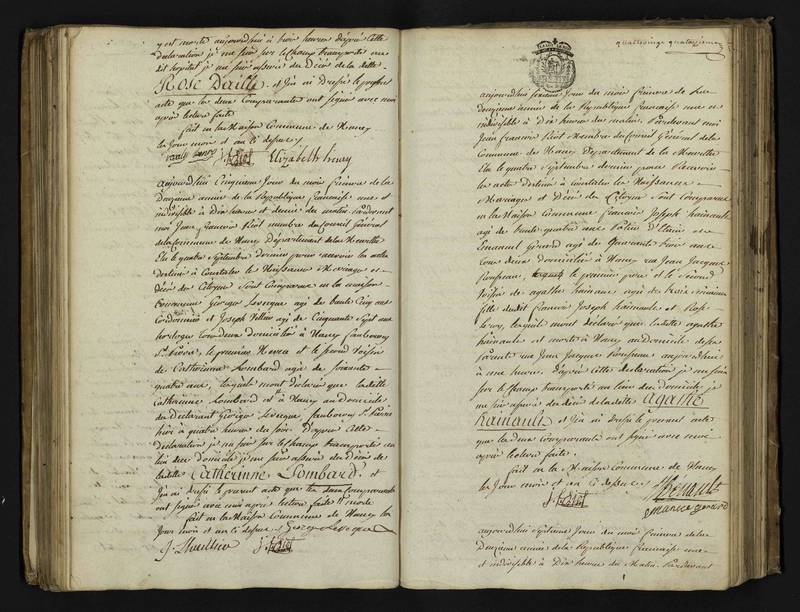 y est morte aujourd'hui à huit heures d'après cette
déclaration je me suis sur le champ transporté au
dit hopital je me suis assuré du Décès de la dette
Rose Deville et j'en ai Dressé le présent
acte que les deux Comparants ont signé avec moi
après lecture faite
fait en la Maison Commune de Nancy
les Jour mois et an ci dessus
Elizabeth henry
aujourd'hui Cinquieme Jour du mois frimaire de la
Deuzieme année de la Republique francaise une et
indivisible à Dix heures et demie du matin Pardevant
moi Jean francois Riot membre du Conseil Général
de la Commune de Nancy Département de la Meurthe
Elu le quatre Septembre dernier pour recevoir les actes
destinés à Constater les Naissances Mariages et
Décès des Citoyens Sont Comparus en la maison
Commune George Levêque agé de trente Cinq ans
Cordonnier et Joseph agé de Cinquante Sept ans
horloger tous deux domiciliés à Nancy faubourg
St Pierre, le premier Neveu et le second Voisin
de Catherinne Lombard agée de soixante
quatre ans, lesquels mont déclarés que ladite
Catherinne Lombard est à Nancy au Domicile
du Declarant George Levêque, faubourg St Pierre
hier à quatre heures du soir D'après Cette
déclaration je me suis sur le champ transporté au
lieu du domicile je me suis assuré du décès de
ladite Catherinne Lombard et
j'en ai dressé le présent acte que les deux Comparants
ont signé avec moi après lecture faite
fait en la Maison Commune de Nancy les
Jour mois et an ci dessus George Leveque
quatrevingt quatorzieme
aujourd'hui sixieme Jour du mois frimaire de la
deuzieme année de la Republique francaise une et
indivisible à Dix heures du matin. Pardevant moi
Jean francois Riot Membre du Conseil Général de la
Commune de Nancy Département de la Meurthe
Elu le quatre Septembre dernier pour Recevoir
les actes destinés à Constater les Naissances
Mariages et Décès des Citoyens Sont Comparus
en la Maison Commune francois Joseph hainault
agé de trente quatre ans Potier d'Etain et
Emanuel Gerard agé de Quarante trois ans
tous deux domiciliés à Nancy rue Jean Jacques
Rousseau, le premier père et le second
Voisin de agathe hainault agée de trois
fille dudit francois Joseph hainault et Rose
lesquels mont declaré que ladite agathe
hainault est morte à Nancy au Domicile de ses
parents rue Jean Jacques Rousseau aujourd'hui
à une heure. D'après Cette declaration je me suis
sur le champ transporté au lieu du domicile je
me suis assuré du décès de ladite agathe
hainault et j'en ai dressé le present acte
que les deux comparants ont signé avec moi
après lecture faite.
fait en la Maison Commune de Nancy
les Jour mois et an ci dessus
aujourd'hui Septieme Jour du mois frimaire de la
Deuzieme année de la Republique francaise une
et indivisible à Dix heures du Matin. Pardevant